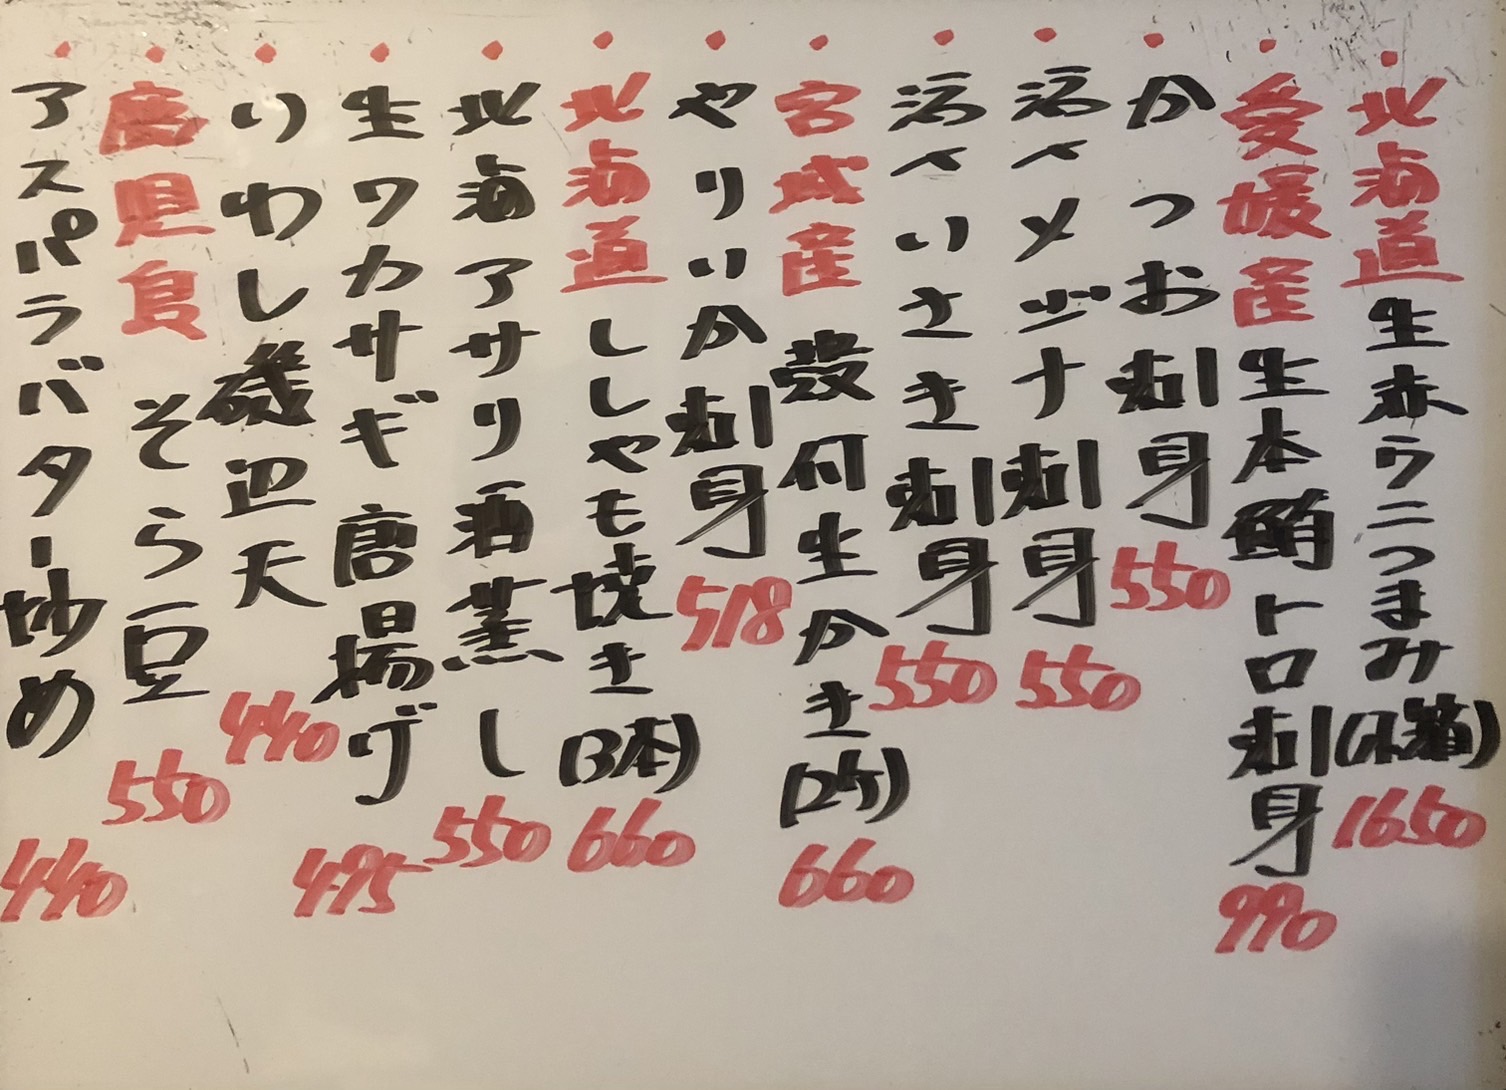 ・北海道生赤ウニつまみ(小箱)1650
・愛媛産生本鮪トロ刺身990
・かつお刺身550
・活〆メジナ刺身550
・活〆いさき刺身550
・宮城産殻付生かき(2ケ)660
・やりいか刺身518
・北海道ししゃも焼き(3本)660
・北海アサリ酒蒸し550
・生ワカサギ唐揚げ495
・いわし磯辺天440
・鹿児島そら豆550
・アスパラバター炒め440